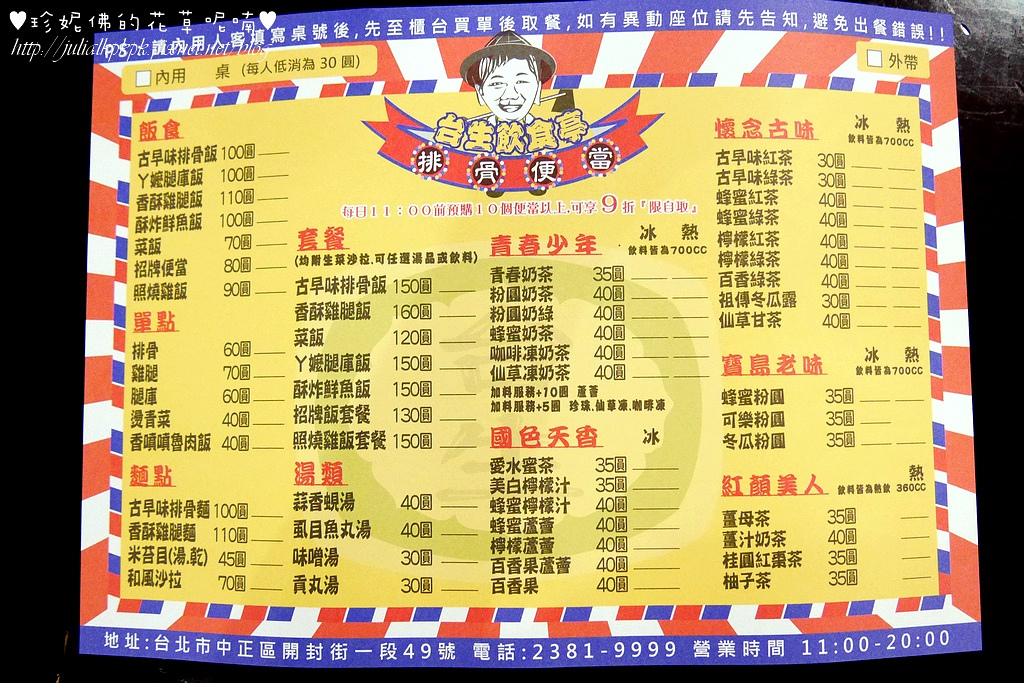 ♥珍妮佛的花草呢喃♥
請內用人客填寫桌號後,先至櫃台買單後取餐,如有異動座位請先告知,避免出餐錯誤!!
內用 桌 (每人低消為 30 圓)
外帶
台生飲食亭
排骨便當
每日11：00前預購10個便當以上,可享9折『限自取』
飯食
古早味排骨飯 100圓
丫嬤腿庫飯 100圓
香酥雞腿飯 110圓
酥炸鮮魚飯 100圓
菜飯 70圓
招牌便當 80圓
照燒雞飯 90圓
單點
排骨 60圓
雞腿 70圓
腿庫 60圓
燙青菜 40圓
香噴噴魯肉飯 40圓
麵點
古早味排骨麵 100圓
香酥雞腿麵 110圓
米苔目(湯.乾) 45圓
和風沙拉 70圓
套餐
(均附生菜沙拉.可任選湯品或飲料)
古早味排骨飯 150圓
香酥雞腿飯 160圓
菜飯 120圓
丫嬤腿庫飯 150圓
酥炸鮮魚飯 150圓
招牌飯套餐 130圓
照燒雞飯套餐 150圓
湯類
蒜香蜆湯 40圓
虱目魚丸湯 40圓
味噌湯 30圓
貢丸湯 30圓
青春少年 冰 熱
飲料皆為700CC
青春奶茶 35圓
粉圓奶茶 40圓
粉圓奶綠 40圓
蜂蜜奶茶 40圓
咖啡凍奶茶 40圓
仙草凍奶茶 40圓
加料服務+10圓 蘆薈
加料服務+5圓 珍珠.仙草凍.咖啡凍
國色天香 冰
愛水蜜茶 35圓
美白檸檬汁 35圓
蜂蜜檸檬汁 40圓
蜂蜜蘆薈 40圓
檸檬蘆薈 40圓
百香果蘆薈 40圓
百香果 40圓
懷念古味 冰 熱
飲料皆為700CC
古早味紅茶 30圓
古早味綠茶 30圓
蜂蜜紅茶 40圓
蜂蜜綠茶 40圓
檸檬紅茶 40圓
檸檬綠茶 40圓
百香綠茶 40圓
祖傳冬瓜露 30圓
仙草甘茶 40圓
寶島老味 冰 熱
飲料皆為700CC
蜂蜜粉圓 35圓
可樂粉圓 35圓
冬瓜粉圓 35圓
紅顏美人 熱
飲料皆為熱飲 360CC
薑母茶 35圓
薑汁奶茶 40圓
桂圓紅棗茶 35圓
柚子茶 35圓
地址:台北市中正區開封街一段49號 電話:2381-9999 營業時間 11:00-20:00